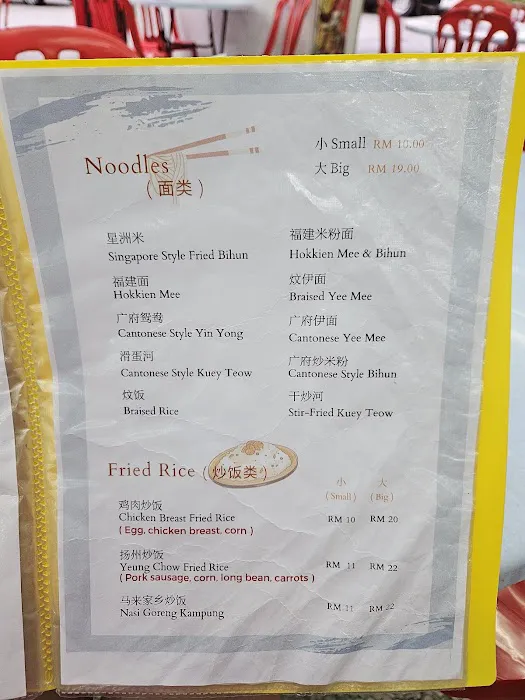 Noodles
(面类)
小 Small RM 10.00
大 Big RM 19.00
星洲米
Singapore Style Fried Bihun
福建面
Hokkien Mee
广府鸳鸯
Cantonese Style Yin Yong
滑蛋河
Cantonese Style Kuey Teow
炆饭
Braised Rice
福建米粉面
Hokkien Mee & Bihun
炆伊面
Braised Yee Mee
广府伊面
Cantonese Yee Mee
广府炒米粉
Cantonese Style Bihun
干炒河
Stir-Fried Kuey Teow
Fried Rice (炒饭类)
小 大
(Small) (Big)
鸡肉炒饭
Chicken Breast Fried Rice RM 10 RM 20
(Egg, chicken breast, corn)
扬州炒饭
Yeung Chow Fried Rice RM 11 RM 22
(Pork sausage, corn, long bean, carrots)
马来家乡炒饭
Nasi Goreng Kampung RM 11 RM 22